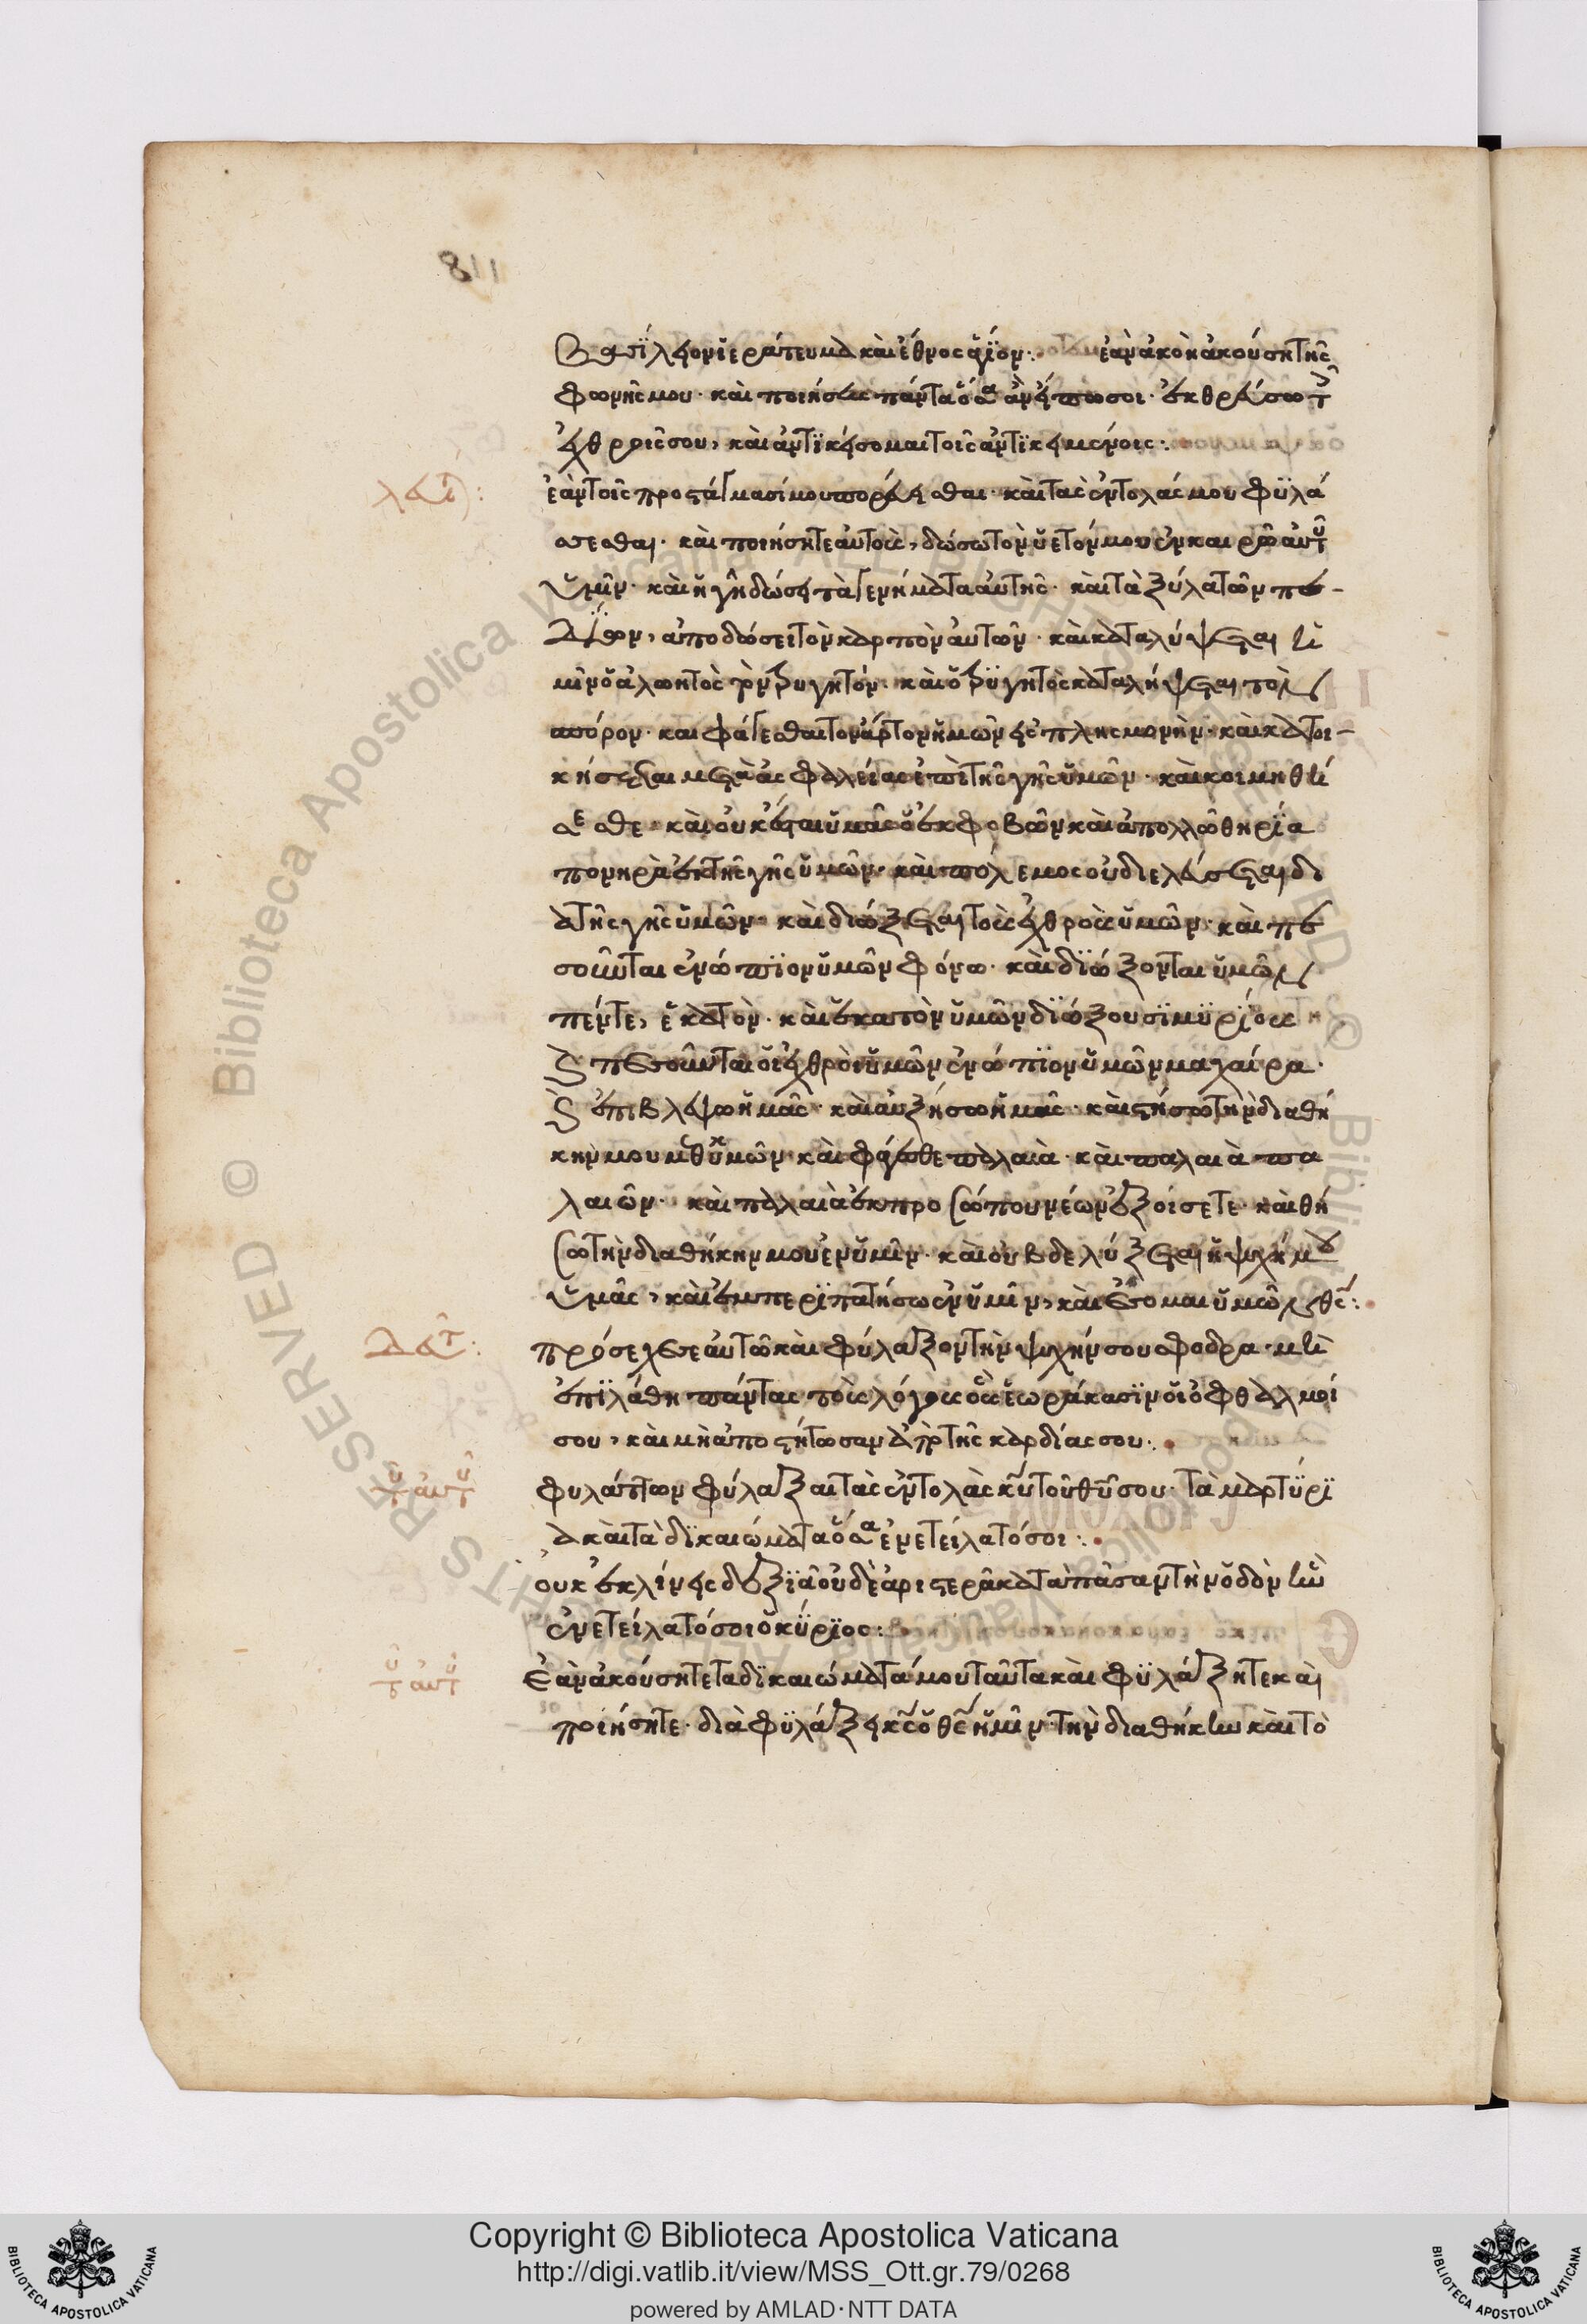 118
βασίλειον ἱεράτευμα καὶ ἔθνος ἅγιον: ἐὰν ἀκοῆ ἀκούσητε τῆς
φωνῆς μου· καὶ ποιήσεις πάντα ὅσα ἂν εἴπω σοι· ἐκθρεύσω τοῖς
ἐχθροῖς σου, καὶ ἀντικείσομαι τοῖς ἀντικειμένοις:
λευϊ:
ἐὰν τοῖς προστάγμασί μου πορεύεισθαι· καὶ τὰς ἐντολάς μου φυλά
σεσθαι· καὶ ποιήσητε αὐτοὺς, δώσω τὸν ὑετόν μου ἐν καιρῶ αὐτοῦ
ὑμῖν· καὶ ἡ γῆ δώσει τὰ γενήματα αὐτῆς· καὶ τὰ ξύλα τῶν πε-
δίων, ἀποδώσει τὸν καρπὸν αὐτῶν· καὶ καταλήψεται ἡ
μῖν ὁ ἀλωητὸς τὸν τρυγητόν· καὶ ὁ τρυγητὸς καταλήψεται τὸν
σπόρον· και φάγεσθαι τον ἄρτον ἡμῶν εἰς πλησμονὴν· καὶ κατοι-
κήσεσθαι μετὰ ἀσφαλείας ἐπὶ τῆς γῆς ὑμῶν· καὶ κοιμηθή
σεσθε· καὶ οὐκ ἔσται ὑμᾶς ὁ ἐκφοβῶν καὶ ἀπολλῶ θηρία
πονηρὰ ἐκ τῆς γῆς ὑμῶν· καὶ πόλεμος οὐ διελεύσεται δι
ὰ τῆς γῆς ὑμῶν· καὶ διώξεται τοὺς ἐχθροὺς ὑμῶν· καὶ πε
σοῦνται ἐνώπϊον ὑμῶν φόνω· καὶ διώξονται ὑμῶν
πέντε, ἑκατὸν· καὶ ἑκατὸν ὑμῶν διώξουσι μυρίους
καὶ πεσοῦνται οἱ ἐχθροὶ ὑμῶν ἐνώπιον ὑμῶν μαχαίρα·
καὶ ἐπιβλέψω ἡμᾶς· καὶ αὐξήσω ἡμᾶς· καὶ στήσω τὴν διαθή
κην μου μεθ' ὑμῶν· καὶ φάγεσθε παλαιὰ· καὶ παλαιὰ πα
λαιῶν· καὶ παλαιὰ ἐκ προσώπου νέων ἐξοίσετε· καὶ θή
σω τὴν διαθήκην μου ἐν ὑμῖν· καὶ οὐ βδελύξεται ἡ ψυχή μου
ὑμᾶς, καὶ ἐμπεριπατήσω ἐν ὑμῖν, καὶ ἔσομαι ὑμῶν θς:
Δευτ:
πρόσεχε σεαυτῶ καὶ φύλαξον τὴν ψυχήν σου σφοδρα· μὴ
ἐπιλάθη πάντας τοὺς λόγους οὓς ἑωράκασιν οἱ ὀφθαλμοί
σου, καὶ μὴ ἀποστήτωσαν ἀπὸ τῆς καρδίας σου:
τοῦ αὐτοῦ
φυλάττων φύλαξαι τὰς ἐντολὰς κυ τοῦ θυ σου· τὰ μαρτύρι
α καὶ τὰ δικαιώματα ὅσα ἐνετείλατό σοι:
οὐκ ἐκκλίνεις δεξϊᾶ οὐδὲ ἀριστερᾶ κατὰ πᾶσαν τὴν ὁδὸν ἣν
ἐνετείλατό σοι ὁ κύριος:
τοῦ αὐτοῦ
Ἐὰν ἀκούσητε τα δικαιώματά μου ταῦτα καὶ φυλάξητε καὶ
ποιήσητε· διὰ φυλάξει κς ὁ θς ἡμῖν τὴν διαθήκην καὶ τὸ
Copyright © Biblioteca Apostolica Vaticana
http://digi.vatlib.it/view/MSS_Ott.gr.79/0268
powered by AMLAD·NTT DATA